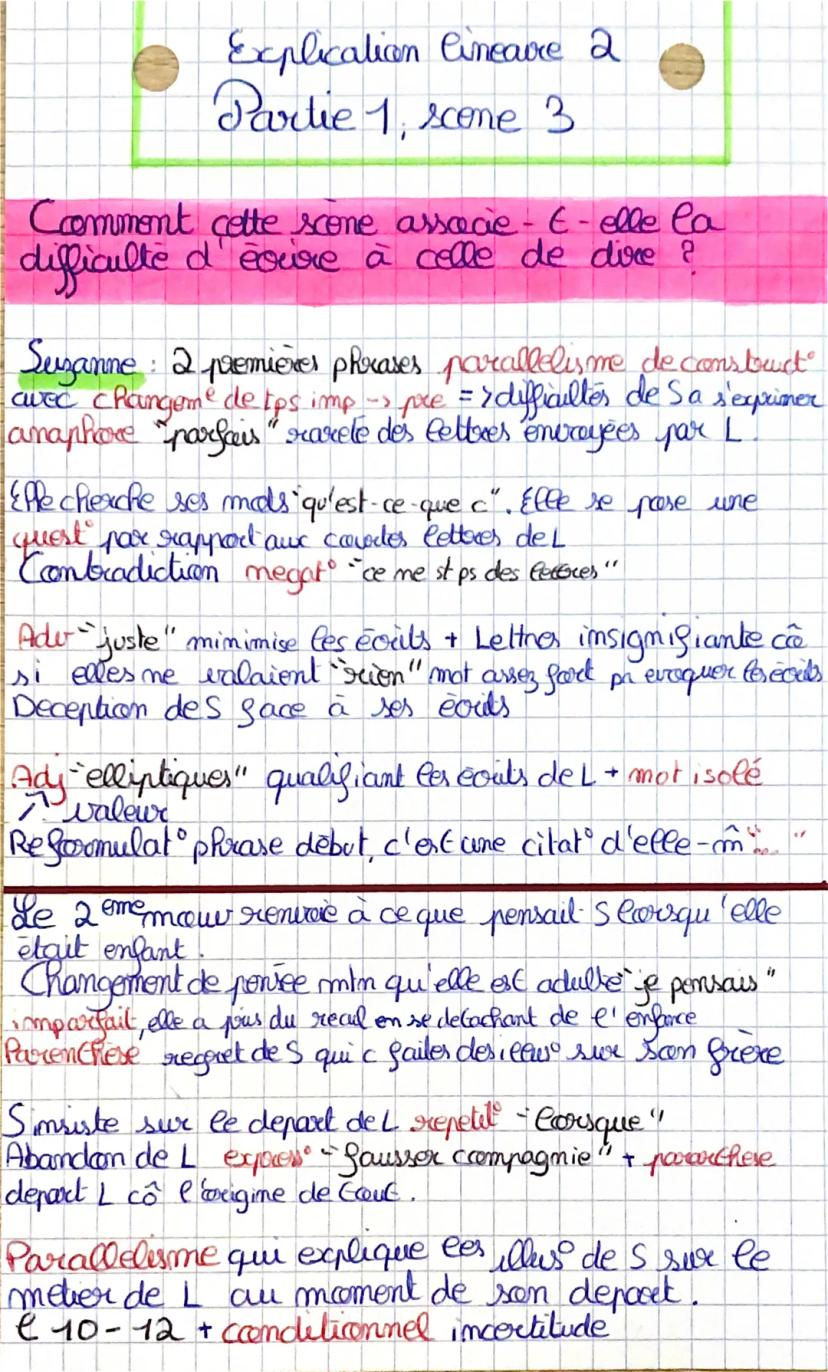 Explication linéaire 2
Partie 1, scène 3
Comment cette scène associe-t-elle la
difficulté d'écrire à celle de dire ?
Suzanne : 2 premières phrases parallelisme de construct°
avec changemᵉ de tps imp -> pre => difficultés de S a s'exprimer
anaphore "parfois" rareté des lettres envoyées par L.
Elle cherche ses mots "qu'est-ce-que c". Elle se pose une
quest° par rapport aux courtes lettres de L
Contradiction negat° "ce ne st ps des lettres"
Adv "juste" minimise les écrits + Lettres insignifiante cô
si elles ne valaient "rien" mot assez fort pr evoquer les écrits
Deception de S face à ses écrits
Adj "elliptiques" qualifiant les écrits de L + mot isolé
↗ valeur
Reformulat° phrase début, c'est une citat° d'elle-m̂ "... "
Le 2eme mouv renvoie à ce que pensait S lorsqu'elle
était enfant.
Changement de pensée mtn qu'elle est adulte "je pensais"
imparfait, elle a plus du recul en se detachant de l'enfance
Parenthèse regret de S qui c faites des illus° sur son frère
S insiste sur le depart de L repetit° "lorsque"
Abandon de L express° "fausser compagnie" + pararthese
depart L cô l'origine de tout.
Parallelisme qui explique les illus° de S sur le
métier de L au moment de son depart.
l 10-12 + conditionnel incertitude